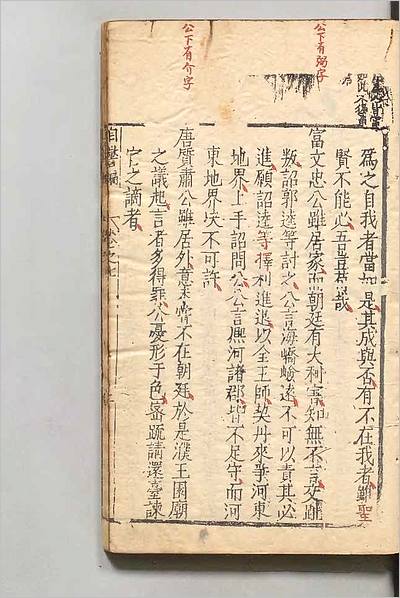 公下有弼字
公下有介字
爲之自我者當如是其成與否有不在我者雖聖
賢不能必吾豈苟哉
富文忠公雖居家而朝廷有大利害知無不言交趾
叛詔郭逵等討之公言海嶠嶮遠不可以責其必
進願詔逵等擇利進退以全王師契丹來爭河東
地界上手詔問公公言熙河諸郡皆不足守而河
東地界決不可許
唐質肅公雖居外意未嘗不在朝廷於是濮王園廟
之議起言者多得罪公憂形于色密疏請還臺諫
官之謫者
自警編